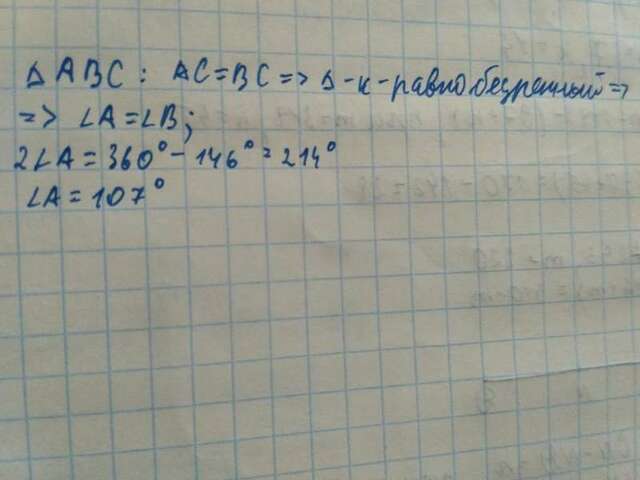 Δ ABC : AC=BC => Δ-к-равнобедренный =>
=> ∠A=∠B;
2∠A = 360° - 146° = 214°
∠A = 107°